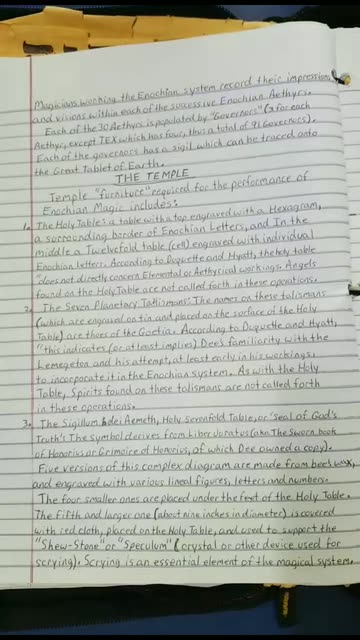 Magicians working the Enochian system record their impressions
and visions within each of the successive Enochian Aethyrs.
Each of the 30 Aethyrs is populated by "Governors" (3 for each
Aethyr, except TEX which has four, thus a total of 91 Governors).
Each of the governors has a sigil which can be traced onto
the Great Tablet of Earth.
THE TEMPLE
Temple "furniture" required for the performance of
Enochian Magic includes:
1. The Holy Table: a table with a top engraved with a Hexagram,
a surrounding border of Enochian Letters, and In the
middle a Twelvefold table (cell) engraved with individual
Enochian letters. According to Duquette and Hyatt, the Holy table
"does not directly concern Elemental or Aethyrical workings. Angels
found on the Holy Table are not called forth in these operations.
2. The Seven Planetary Talismans: The names on these talismans
(which are engraved on tin and placed on the surface of the Holy
Table) are those of the Goetia. According to Duquette and Hyatt,
"this indicates (or at least implies) Dee's familiarity with the
Lemegeton and his attempt, at least early in his workings,
to incorporate it in the Enochian system. As with the Holy
Table, Spirits found on these talismans are not called forth
in these operations.
3. The Sigillum dei Aemeth, Holy Sevenfold Table, or 'Seal of God's
Truth's The symbol derives from Liber Juratus (aka The Sworn book
of Honorius or Grimoire of Honorius, of which Dee owned a copy).
Five versions of this complex diagram are made from bees wax,
and engraved with various lineal figures, letters and numbers.
The four smaller ones are placed under the feet of the Holy Table.
The fifth and larger one (about nine inches in diameter) is covered
with red cloth, placed on the Holy Table, and used to support the
"Shew-Stone" or "Speculum" (crystal or other device used for
scrying). Scrying is an essential element of the magical system.